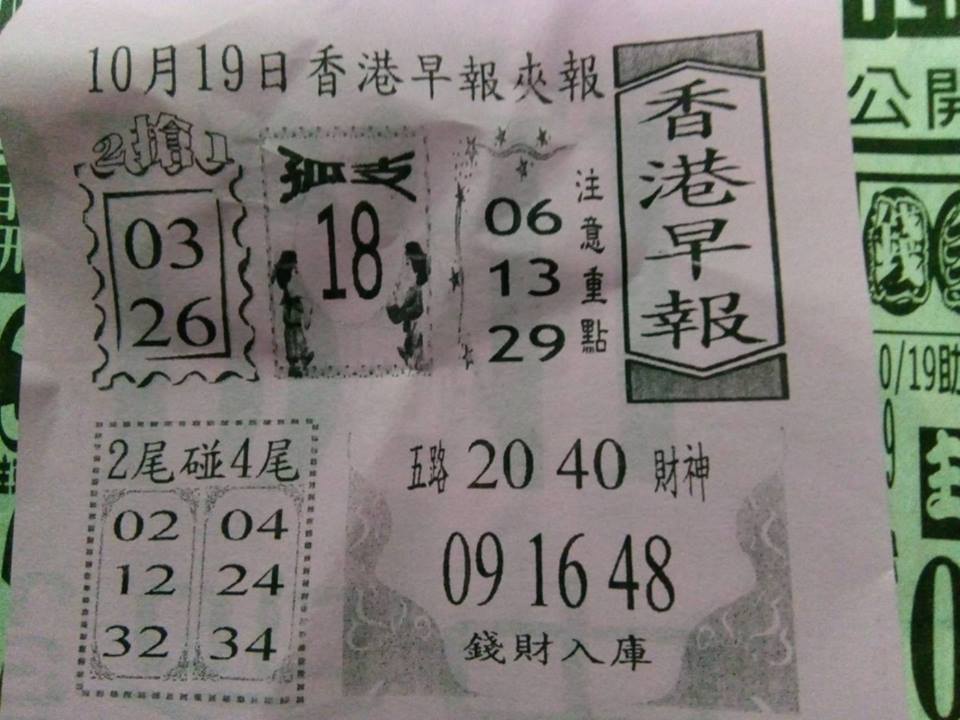 10月19日香港早報夾報
香港早報
2搶1
03
26
孤支
18
注意重點
06
13
29
2尾碰4尾
02 04
12 24
32 34
五路 20 40 財神
09 16 48
錢財入庫
公開
錢
0/19助